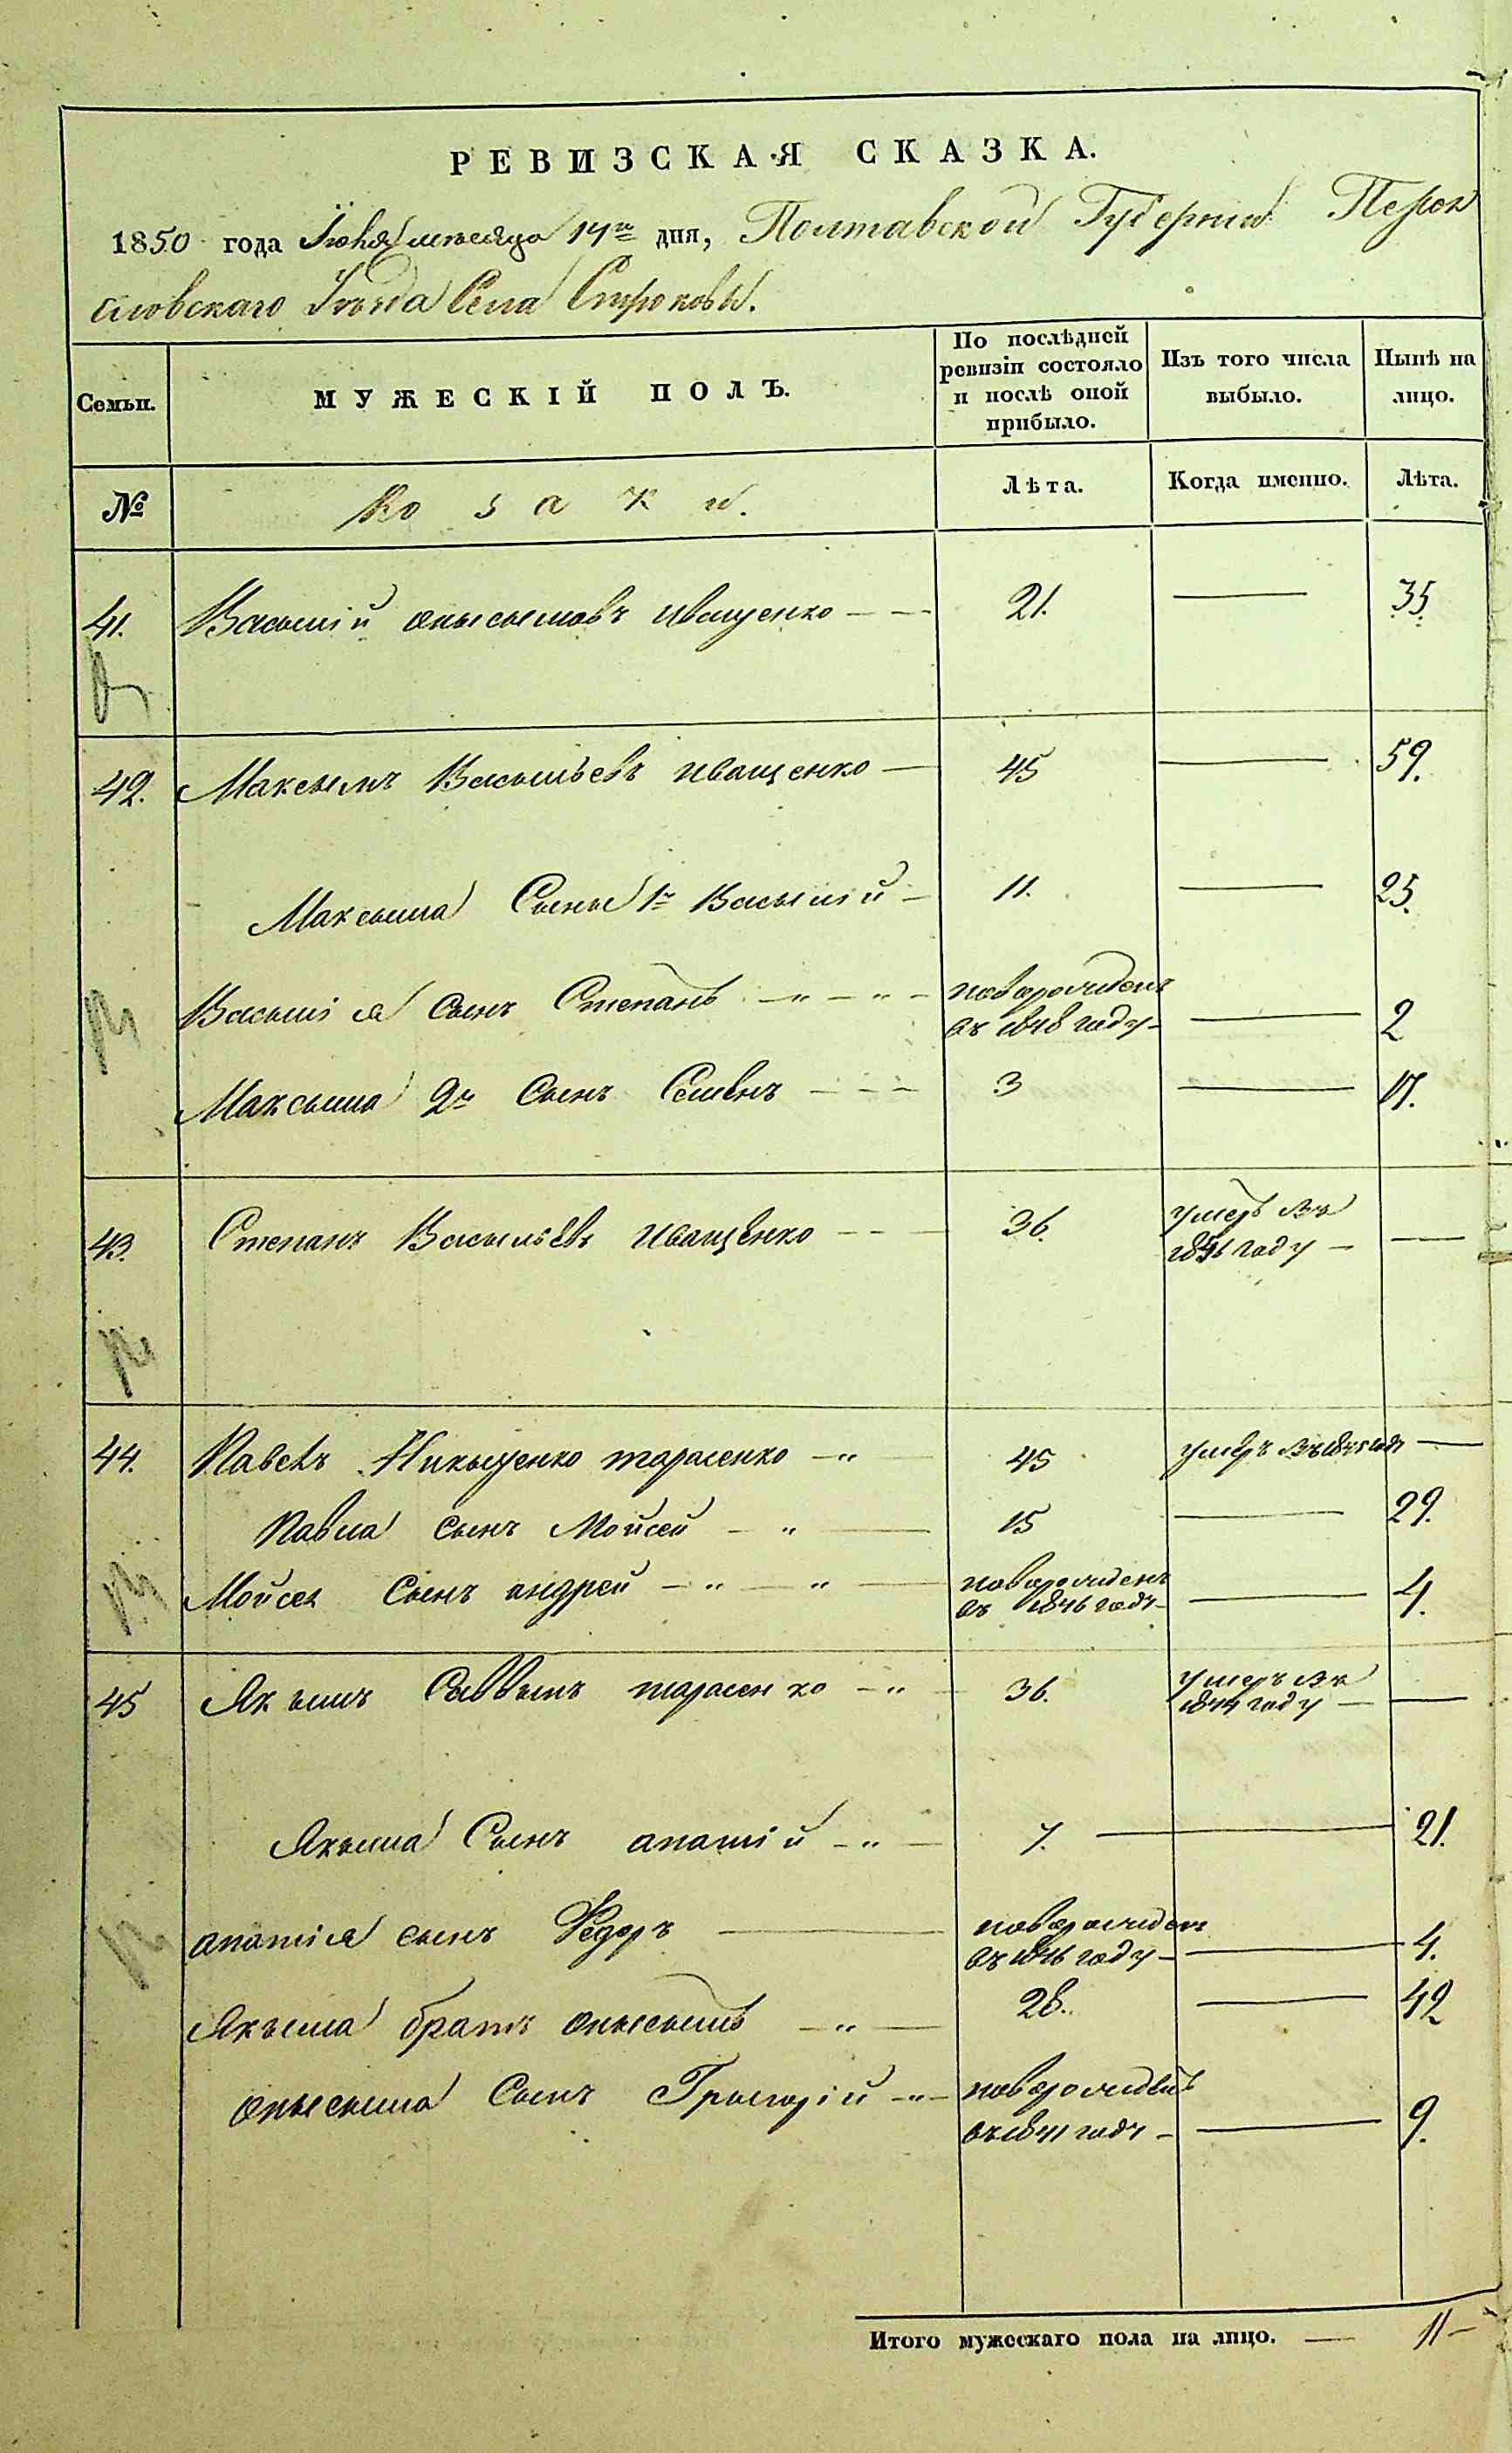 РЕВИЗСКАЯ СКАЗКА.
1850 года Июня месяца 14го дня, Полтавской Губерніи Перея
словскаго Уезда Села Строковы.
Семьи.
МУЖЕСКІЙ ПОЛЪ.
По послѣдней
ревизіи состояло
и послѣ оной
прибыло.
Изъ того числа
выбыло.
Нынѣ на
лицо.
№
Козаки.
Лѣта.
Когда именно.
Лѣта.
41. Васылій Онысымовъ Иващенко — — 21. — 35.
42. Максымъ Васыльевъ Иващенко — 45 — 59.
Максыма Сыны 1й Васылій — 11. — 25.
Васылія Сынъ Степанъ — „ — „ — новорожденъ
въ 1848 году — — 2
Максыма 2й Сынъ Семенъ — — — 3 — 17.
43. Степанъ Васыльевъ Иващенко — — 36. умеръ въ
1846 году — —
44. Павелъ Никыченко тарасенко — „ — 45 умеръ въ 1845 годѣ —
Павла Сынъ Мойсей — „ — 15 — 29.
Мойсея Сынъ андрей — „ — „ — новорожденъ
въ 1846 году — — 4.
45 Якымъ Саввынъ тарасенко — „ — 36. умеръ въ
1844 году — —
Якыма Сынъ ипатій — „ — 7. — 21.
ипатія сынъ Федоръ — новорожденъ
въ 1846 году — — 4.
Якыма братъ Онысымъ — „ — 28. — 42
Онысыма Сынъ Грыгорій — „ — новорожденъ
въ 1841 году — — 9.
Итого мужескаго пола на лицо. — 11 —